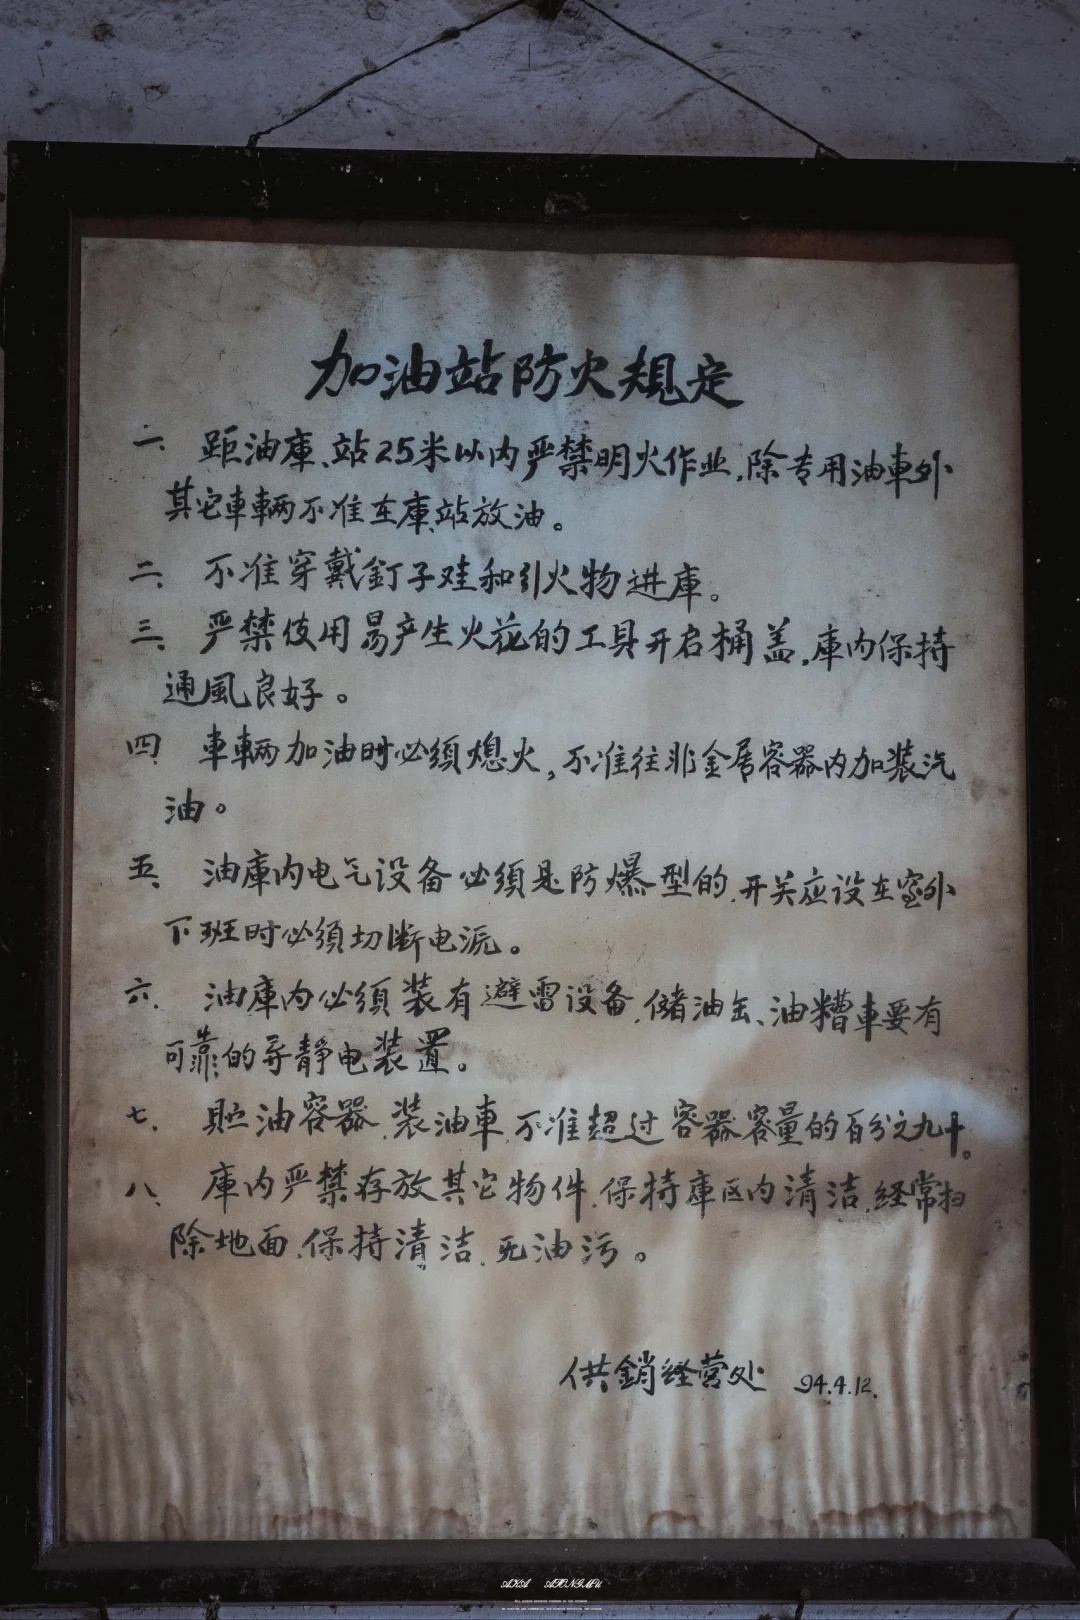 加油站防火規定
一、距油庫、站25米以内严禁明火作业,除专用油車外
其它車輛不准在庫、站放油。
二、不准穿戴釘子鞋和引火物进庫。
三、严禁使用易产生火花的工具开启桶盖,庫内保持
通風良好。
四、車輛加油时必须熄火,不准往非金属容器内加装汽
油。
五、油庫内电气设备必须是防爆型的,开关应设在室外
下班时必须切断电源。
六、油庫内必须装有避雷设备,储油缶、油糟車要有
可靠的导静电装置。
七、貯油容器、装油車,不准超过容器容量的百分之九十。
八、庫内严禁存放其它物件,保持庫区内清洁,经常扫
除地面,保持清洁,无油污。
供銷经营处 94.4.12.
AKA ATONGMU